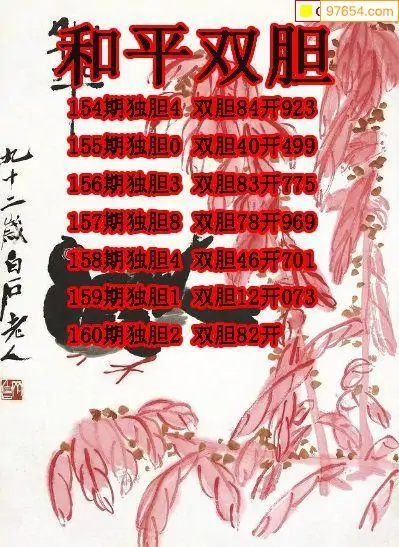 97654.com
和平双胆
154期独胆4 双胆84开923
155期独胆0 双胆40开499
156期独胆3 双胆83开775
157期独胆8 双胆78开969
158期独胆4 双胆46开701
159期独胆1 双胆12开073
160期独胆2 双胆82开
九十二歲白石老人